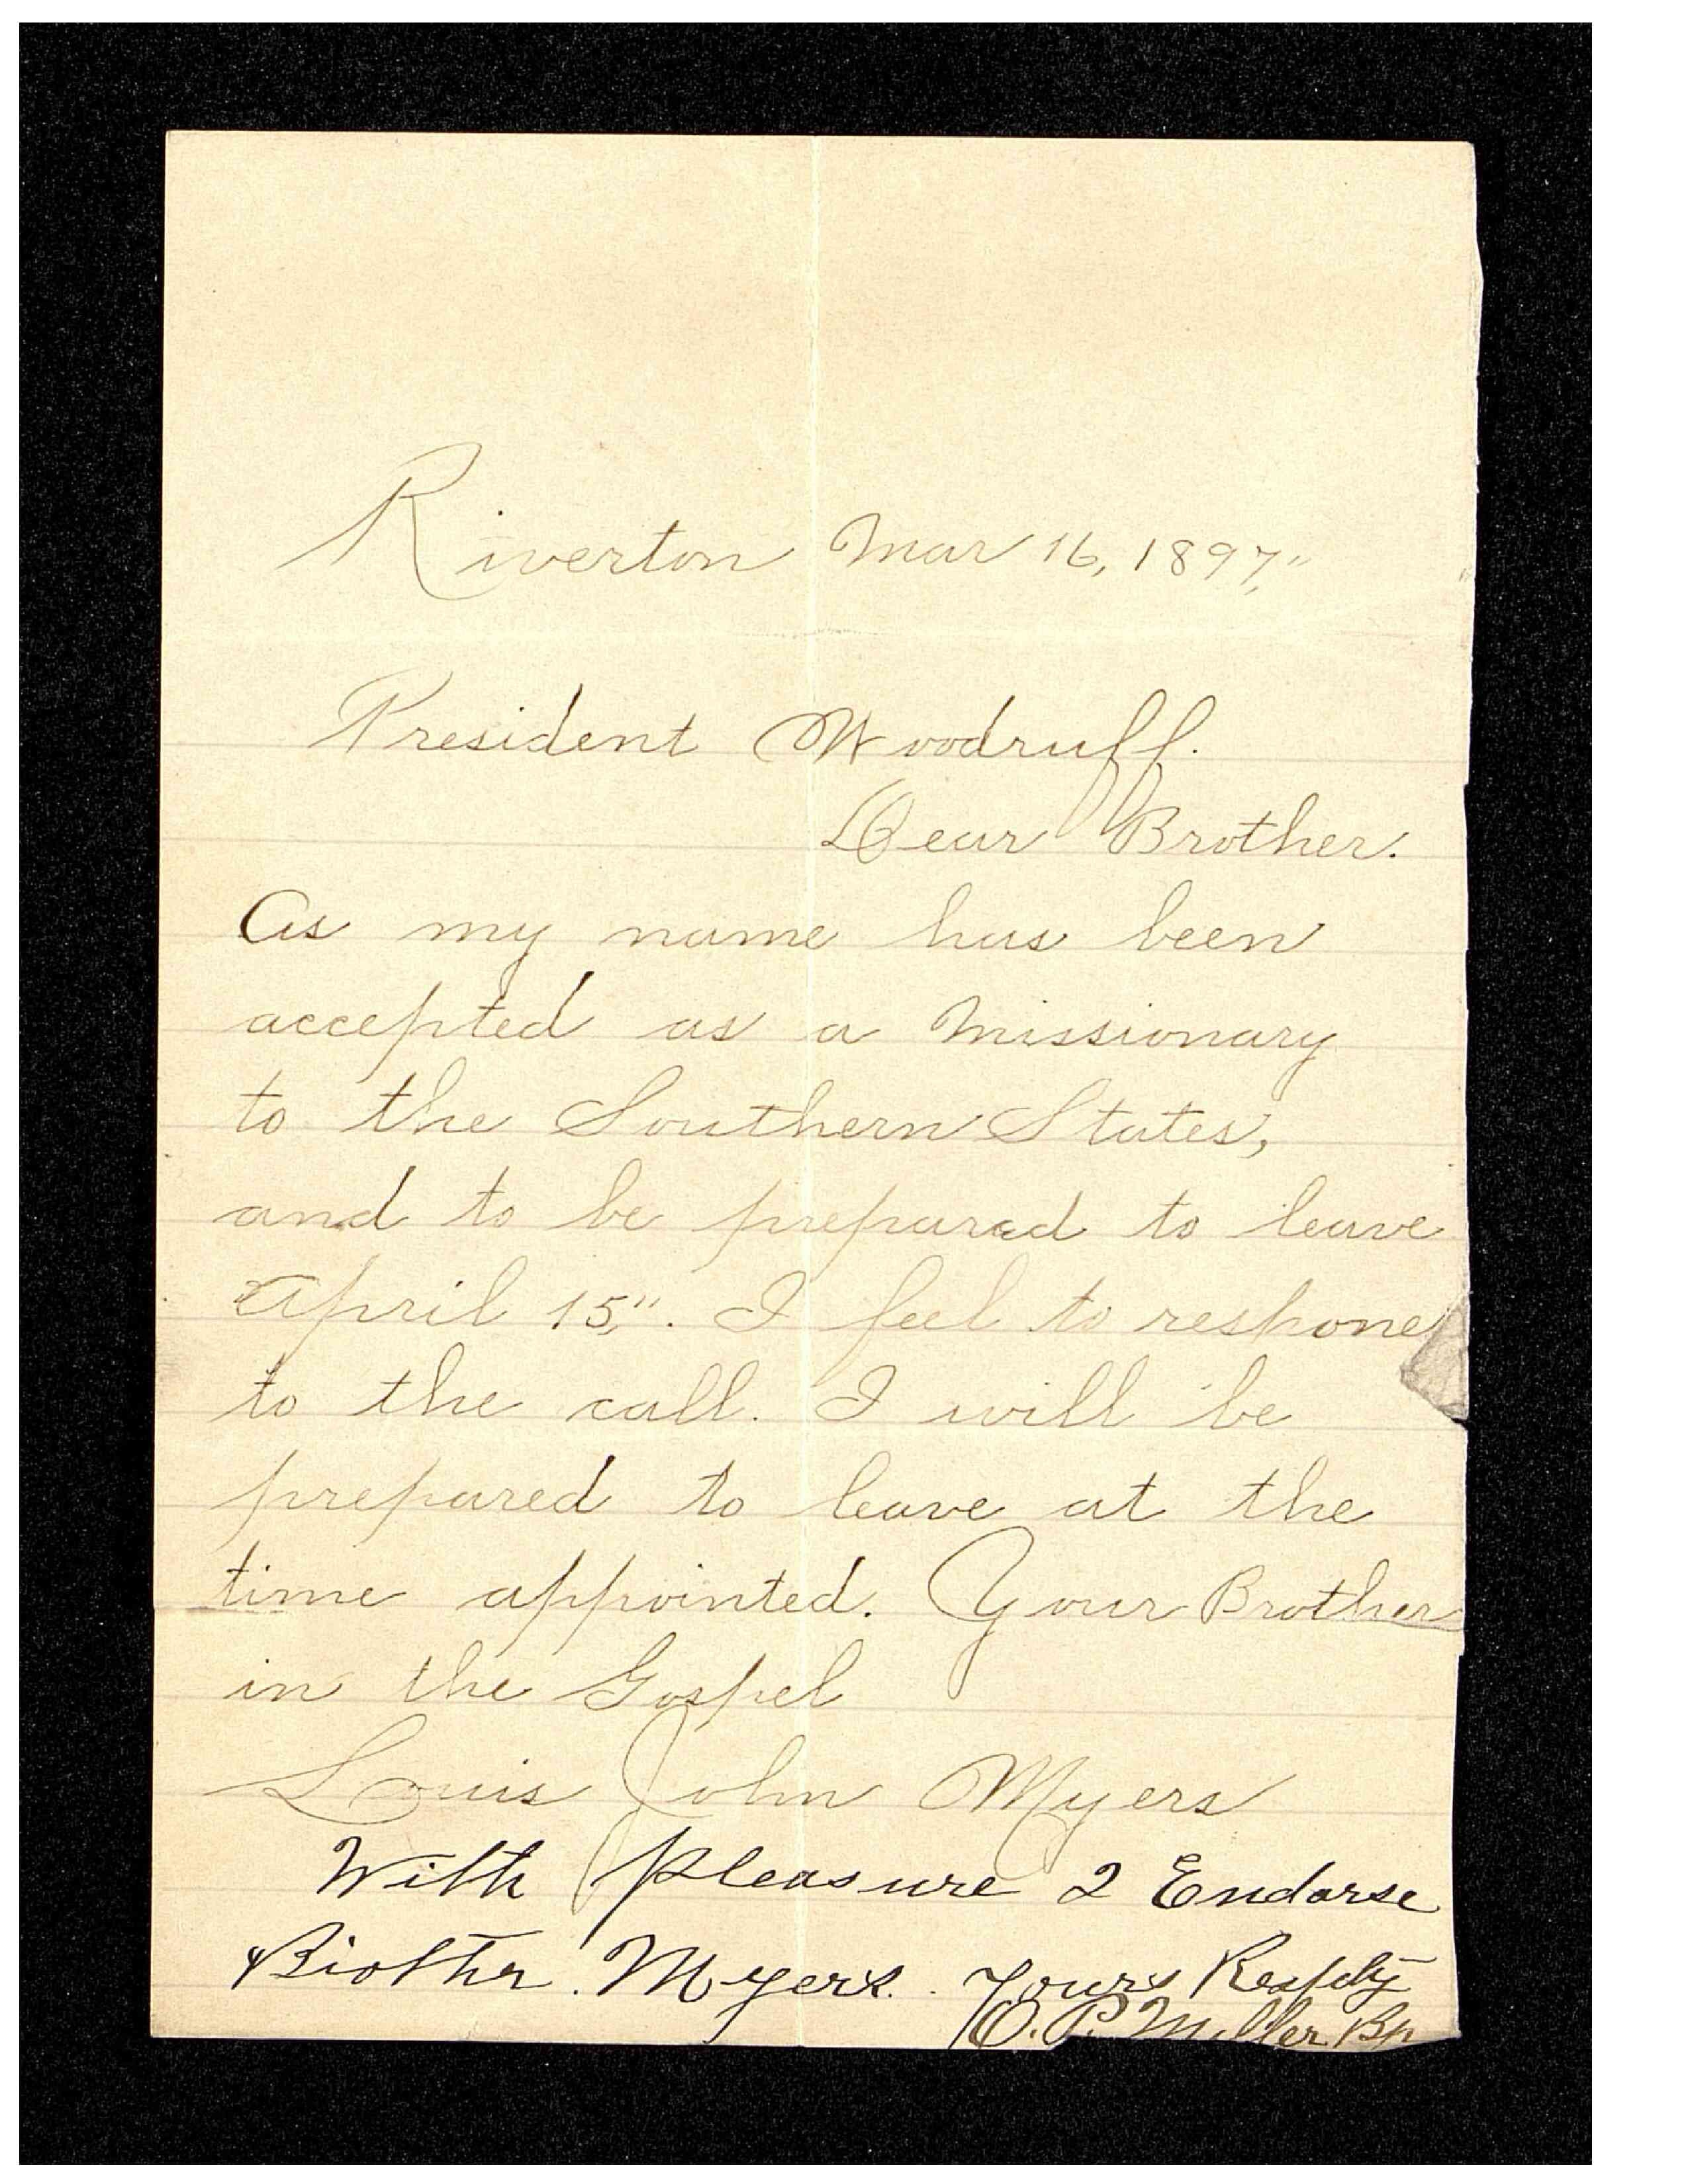 Riverton Mar 16, 1897,"
President Woodruff.
Dear Brother.
As my name has been
accepted as a Missionary
to the Southern States,
and to be prepared to leave
April 15,". I feel to respone
to the call. I will be
prepared to leave at the
time appointed. Your Brother
in the Gospel
Louis John Myers
With pleasure I Endorse
Brother. Myers. Yours Respfly
O. P. Miller Bp